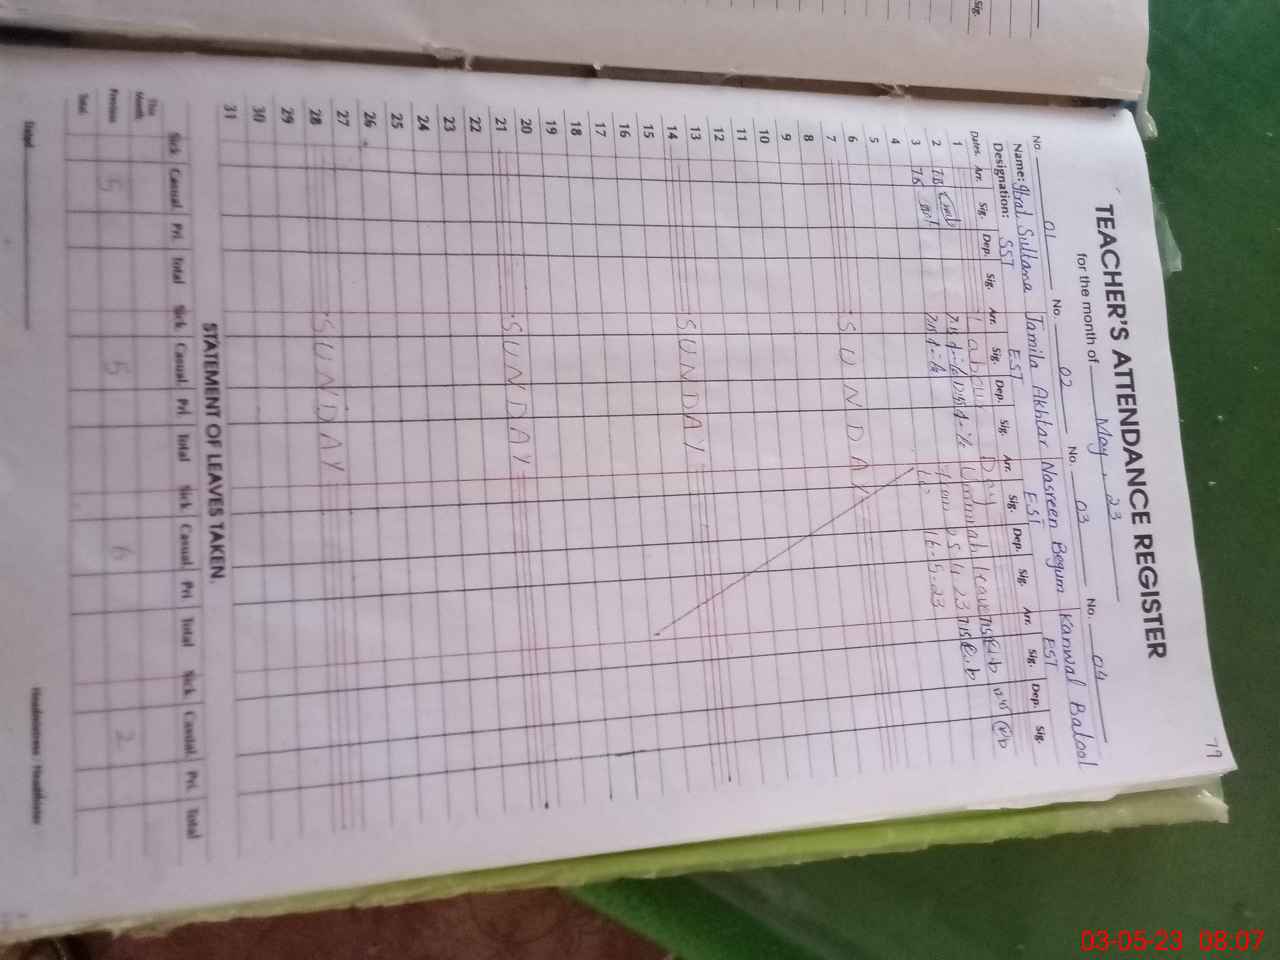 Sig.
79
TEACHER'S ATTENDANCE REGISTER
for the month of May, 23
No. 01 No. 02 No. 03 No. 04
Name: Sultana Jamila Akhtar Nasreen Begum Kanwal Batool
Designation: SST EST EST EST
Dates. Arr. Sig. Dep. Sig. Arr. Sig. Dep. Sig. Arr. Sig. Dep. Sig. Arr. Sig. Dep. Sig.
1 Labour Day
2 Ummrah leave
3 16-5-23
4
5
6
7 SUNDAY
8
9
10
11
12
13
14 SUNDAY
15
16
17
18
19
20
21 SUNDAY
22
23
24
25
26
27
28 SUNDAY
29
30
31
STATEMENT OF LEAVES TAKEN.
Sick Casual Pri Total Sick Casual Pri Total Sick Casual Pri Total Sick Casual Pri. Total
This Month
Previous 5 5 6 2
Total
Dated
Headmistress - Headmaster
03-05-23 08:07